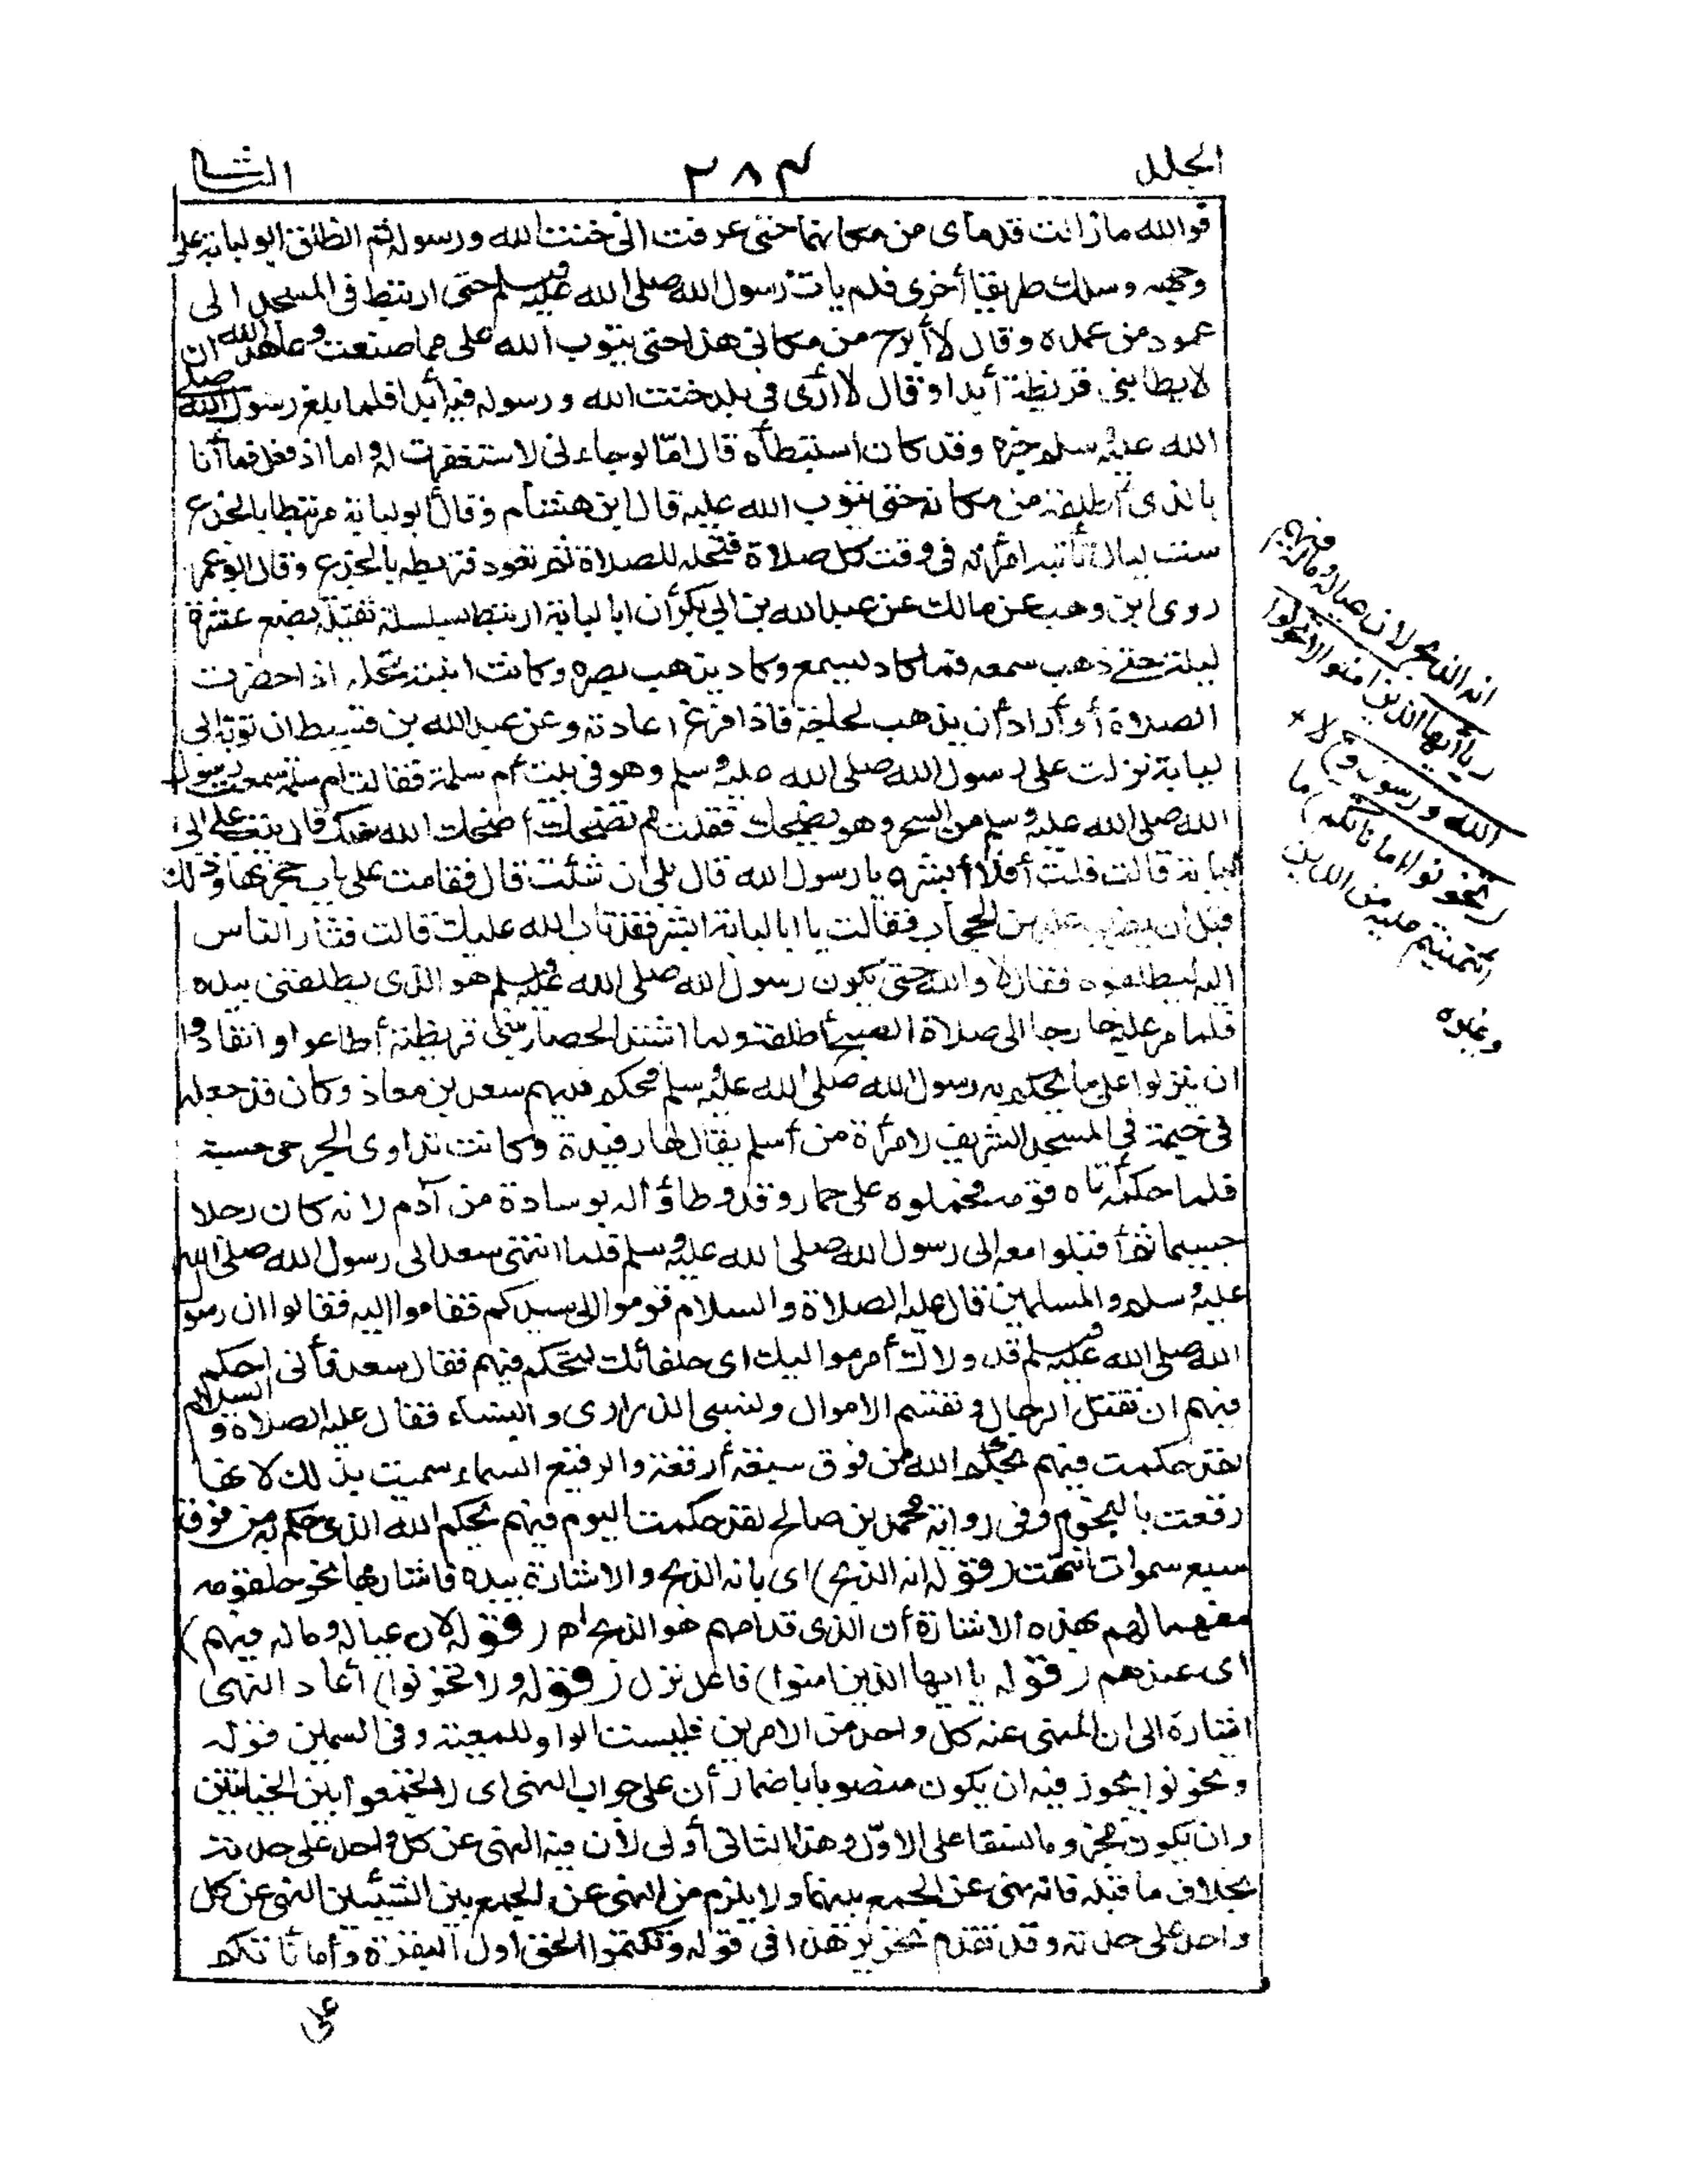 المجلد ٢٨٣ الثاني
فوالله ما زالت قدماي من مكانهما حتى عرفت اني خنت الله ورسوله ثم انطلق ابو لبابة على
وجهه وسلك طريقا أخرى فلم يأت رسول الله صلى الله عليه وسلم حتى ارتبط في المسجد الى
عمود من عمده وقال لا أبرح من مكاني هذا حتى يتوب الله علي مما صنعت وعاهد الله ان
لا يطأ بني قريظة أبدا وقال لا أرى في بلد خنت الله ورسوله فيه أبدا فلما بلغ رسول الله صلى
الله عليه وسلم خبره وقد كان استبطأه قال امّا لو جاءني لاستغفرت له واما اذ فعل فما أنا
بالذي أطلقه من مكانه حتى يتوب الله عليه قال ابن هشام وقال أبو لبابة مرتبطا بالجذع
ست ليال تأتيه امرأته في وقت كل صلاة فتحله للصلاة ثم تعود فتربطه بالجذع وقال ابو عمر
روى ابن وهب عن مالك عن عبد الله بن ابي بكر أن ابا لبابة ارتبط بسلسلة ثقيلة بضع عشرة
ليلة حتى ذهب سمعه فما كاد يسمع وكاد يذهب بصره وكانت ابنته تحله اذا حضرت
الصلاة أو أراد أن يذهب لحاجة فاذا فرغ اعادته وعن عبد الله بن قسيط ان توبة ابي
لبابة نزلت على رسول الله صلى الله عليه وسلم وهو في بيت أم سلمة فقالت ام سلمة سمعت رسول
الله صلى الله عليه وسلم من السحر وهو يضحك فقلت مم تضحك أضحك الله سنك قال تيب على ابي
لبابة قالت قلت أفلا أبشره يا رسول الله قال بلى ان شئت قال فقامت على باب حجرتها وذلك
قبل ان يضرب عليهن الحجاب فقالت يا ابا لبابة ابشر فقد تاب الله عليك قالت فثار الناس
اليه ليطلقوه فقال لا والله حتى يكون رسول الله صلى الله عليه وسلم هو الذي يطلقني بيده
فلما مر عليه خارجا الى صلاة الصبح أطلقه ولما اشتد الحصار ببني قريظة أطاعوا وانقادوا
ان ينزلوا على ما يحكم به رسول الله صلى الله عليه وسلم فحكم فيهم سعد بن معاذ وكان قد جعله
في خيمة في المسجد الشريف لامرأة من أسلم يقال لها رفيدة وكانت تداوي الجرحى حسبة
فلما حكمه أتاه قومه فحملوه على حمار وقد وطاؤا له بوسادة من آدم لانه كان رجلا
جسيما ثم أقبلوا معه الى رسول الله صلى الله عليه وسلم فلما انتهى سعد الى رسول الله صلى الله
عليه وسلم والمسلمين قال عليه الصلاة والسلام قوموا الى سيدكم فقاموا اليه فقالوا ان رسول
الله صلى الله عليه وسلم قد ولاك أمر مواليك اي حلفائك لتحكم فيهم فقال سعد فأني احكم
فيهم ان تقتل الرجال وتقسم الاموال وتسبى الذراري والنساء فقال عليه الصلاة والسلام
لقد حكمت فيهم بحكم الله من فوق سبعة أرقعة والرقيع السماء سميت بذلك لانها
رقعت بالنجوم وفي رواية محمد بن صالح لقد حكمت اليوم فيهم بحكم الله الذي حكم به من فوق
سبع سموات انتهت (قوله انه الذبح) اي بانه الذبح والاشارة بيده فاشار بها نحو حلقومه
مفهما لهم بهذه الاشارة أن الذي قدامهم هو الذبح اهـ (قوله لان عياله وماله فيهم)
اي عندهم (قوله يا ايها الذين امنوا) فاعل نزل (قوله ولا تخونوا) أعاد النهي
اشارة الى ان المنهي عنه كل واحد من الامرين فليست الواو للمعية وفي السمين قوله
وتخونوا يجوز فيه ان يكون منصوبا باضمار أن على جواب النهي اي لا تجمعوا بين الخيانتين
وان يكون مجزوما نسقا على الاوّل وهذا الثاني أولى لأن فيه النهي عن كل واحد على حدته
بخلاف ما قبله فانه نهي عن الجمع بينهما ولا يلزم من النهي عن الجمع بين الشيئين النهي عن كل
واحد على حدته وقد تقدم تحرير هذا في قوله وتكتموا الحق اول البقرة وأماناتكم
على
انه الذبح لان عياله وماله فيهم
(يا أيها الذين امنوا لا تخونوا
الله والرسول و) لا
(تخونوا اماناتكم) ما
ائتمنتم عليه من الدين
وغيره